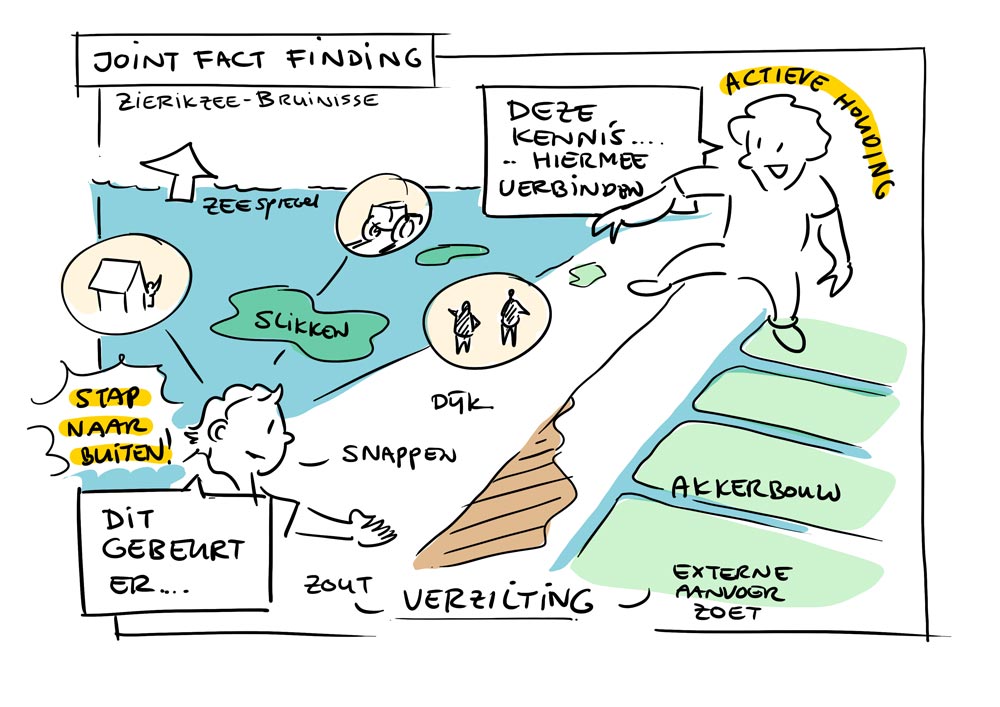 JOINT FACT FINDING
ZIERIKZEE-BRUINISSE
ACTIEVE HOUDING
DEZE
KENNIS....
.. HIERMEE
VERBINDEN
ZEESPIEGEL
SLIKKEN
STAP
NAAR
BUITEN!
DIJK
SNAPPEN
AKKERBOUW
DIT
GEBEURT
ER....
ZOUT
VERZILTING
EXTERNE
AANVOER
ZOET